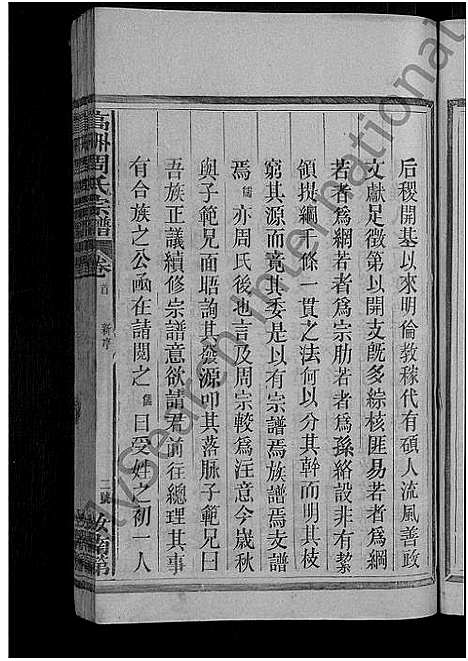 后稷開基以來明倫教稼代有碩人流風善政
文獻足徵第以開支既多綜核匪易若者為綱
若者為網若者為宗肋若者為孫絡設非有絜
領提綱千條一貫之法何以分其幹而明其枝
窮其源而竟其委是以有宗譜焉族譜焉支譜
焉儒亦周氏後也言及周宗較為注意今歲秋
與子範兄面晤詢其發源叩其落脉子範兄曰
吾族正議續修宗譜意欲請君前往總理其事
有合族之公函在請閱之儒曰受姓之初一人
高洲周氏宗譜
卷首
新序
二號
汝南第
MySeat in International